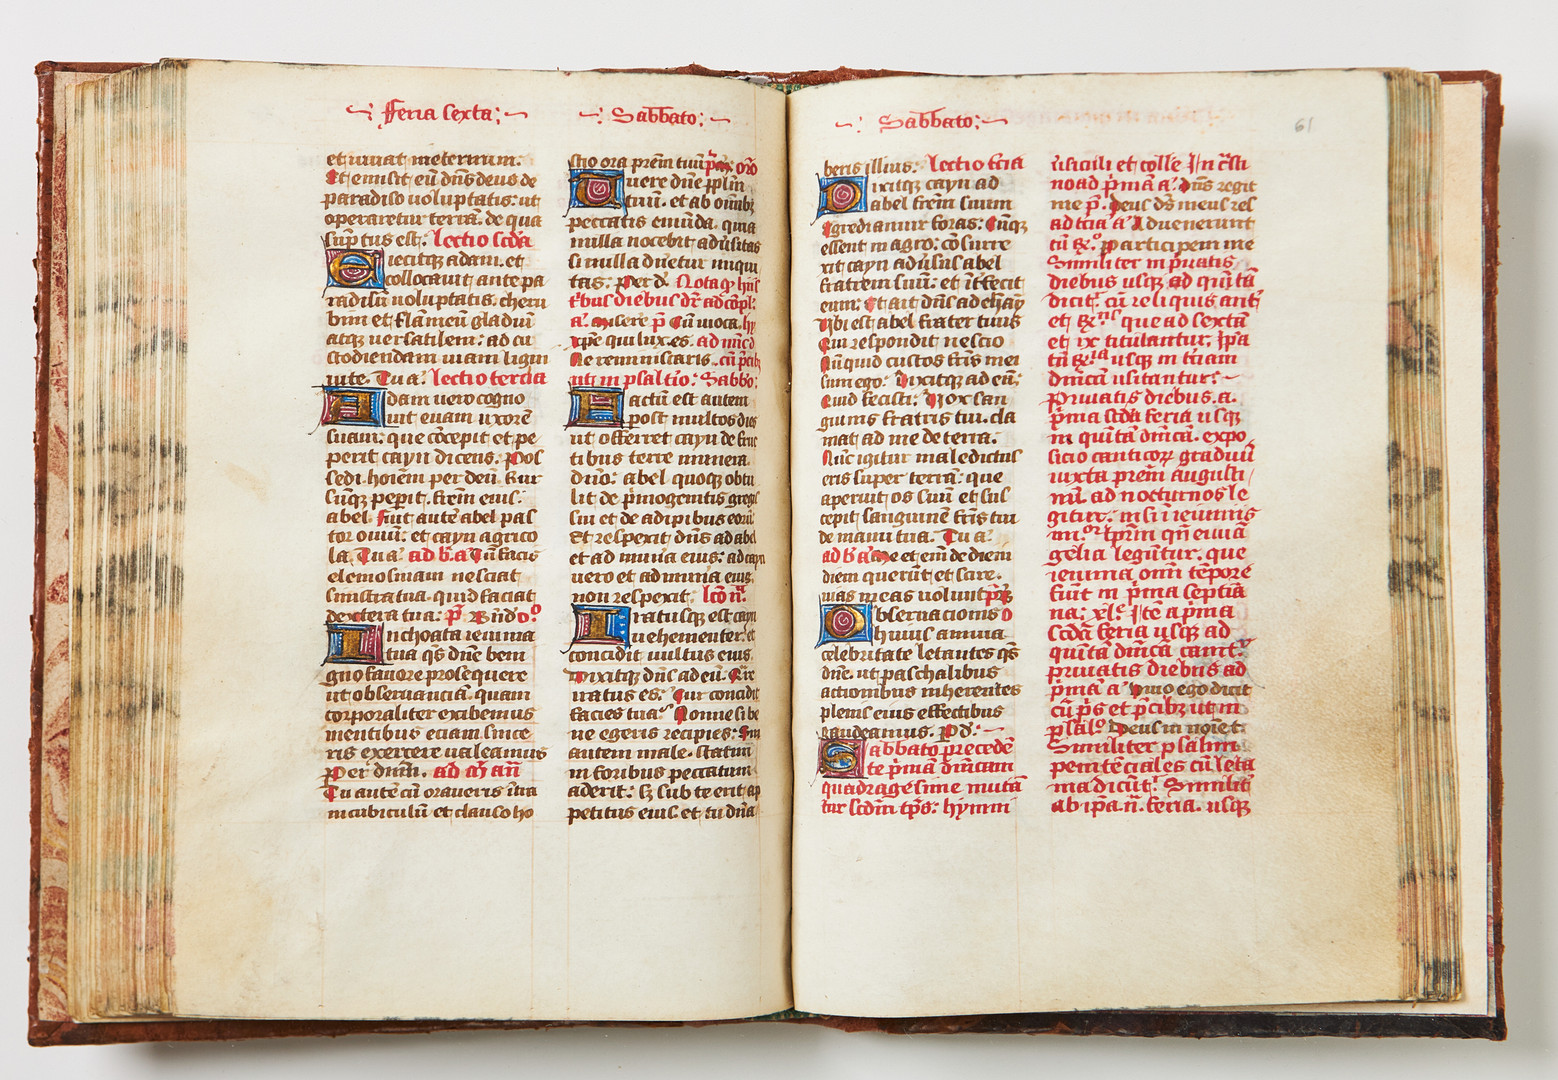 Feria sexta:
et vivat meternum.
Et emisit eū dn̄s deus de
paradiso voluptatis: ut
operaretur terrā. de qua
sūptus est. lectio scd̄a
Eiecitq; adam. et
collocavit ante pa
radisū voluptatis. cheru
bim et flāmeū gladiū
atq; versatilem: ad cu
stodiendam viam ligni
vite. Tu a. lectio tercia
Adam vero cogno
vit evam uxorē
suam: que cōcepit et pe
perit cayn dicens. Pos
sedi hoīem per deū. Rur
sūq; pepit. frēm eius:
abel. Fuit autē abel pas
tor oviū: et cayn agrico
la. Tu a. ad b. a. Tū facis
elemosinam nesciat
sinistra tua. quid faciat
dextera tua: p̄.
Inchoata ieiunia
tua q̄s dn̄e beni
gno favore prosequere
ut observanciā. quam
corporaliter exibemus
mentibus eciam since
ris exercere valeamus
Per dnm̄. ad an̄
Tu autē cū oraveris ītra
in cubiculū et clauso ho
Sabbato:
stio ora prēm tuū
Tuere dn̄e pplm̄
tuū. et ab omīb;
peccatis emūda. quia
nulla nocebit adūsitas
si nulla dn̄etur iniqui
tas. Per d. Nota q;
diebus
a. Misere p̄ Cū invoca. hy
xp̄e qui lux es. ad nūc d
Ne reminiscaris.
ut in psaltio: Sabbo:
Factū est autem
post multos dies
ut offerret cayn de fruc
tibus terre munera
dn̄o: abel quoq; obtu
lit de p̄mogenitis gregis
sui et de adipibus eorū
Et respexit dn̄s ad abel
et ad munera eius: ad cayn
vero et ad munera eius
non respexit. lcō
Iratusq; est cayn
vehementer: et
concidit vultus eius
Dixitq; dn̄s ad eū. Cur
iratus es: Cur concidit
facies tua: Nonne si be
ne egeris recipies: Sin
autem male. statim
in foribus peccatum
aderit: sz sub te erit ap
petitus eius. et tu dn̄a
Sabbato:
61
beris illius: lectio t̄cia
Dixitq; cayn ad
abel frēm suum
Egrediamur foras: Cūq;
essent in agro: cōsurre
xit cayn adūsus abel
fratrem suū: et īt̄fecit
eum: Et ait dn̄s ad cayn
Ubi est abel frater tuus
Qui respondit nescio
Nūquid custos fr̄is mei
sum ego: Dixitq; ad eū:
Quid fecisti: Vox san
guinis fratris tui. cla
mat ad me de terra.
Nūc igitur maledictus
eris super terrā: que
aperuit os suū et sus
cepit sanguinē fr̄is tui
de manu tua. Tu a.
ad b. a. Me et em̄ de diem
diem querūt et scire.
vias meas volunt
Observacionis
huius annua
celebritate letantes q̄s
dn̄e. ut paschalibus
actionibus inherentes
plenis eius effectibus
gaudeamus. P d.
Sabbato precedē
te p̄mā dn̄icam
quadragesime mutā
tur scdm̄ tp̄s: hymni
v̄sicili et colle In
noad p̄mā a. dn̄s regit
me p̄. deus ds̄ meus res
ad t̄cia a. Advenerunt
participem me
Similiter in p̄vatis
diebus usq; ad quītā
dicit: cū reliquis ant
et que ad sextā
et ix titulantur: ip̄a
usq; in t̄ciam
dn̄icā usitantur:
Privatis diebus. a.
p̄ma scd̄a feria usq;
in quītā dn̄icā. expo
sicio canticor graduū
iuxta prēm augusti
nū. ad nocturnos le
gitur:
gelia legūtur. que
ieiunia om̄i tēpore
fiūt in p̄ma septīa
na: xl: Ite a p̄ma
scd̄a feria usq; ad
quītā dn̄icā cant:
privatis diebus ad
p̄mā a. Vivo ego dicit
cū p̄s et p̄cib; ut in
psal. Deus in noīe t.
Similiter psalmi
penitēciales cū leta
nia dicūt: Similit̄
ab ip̄a ii. feria. usq;